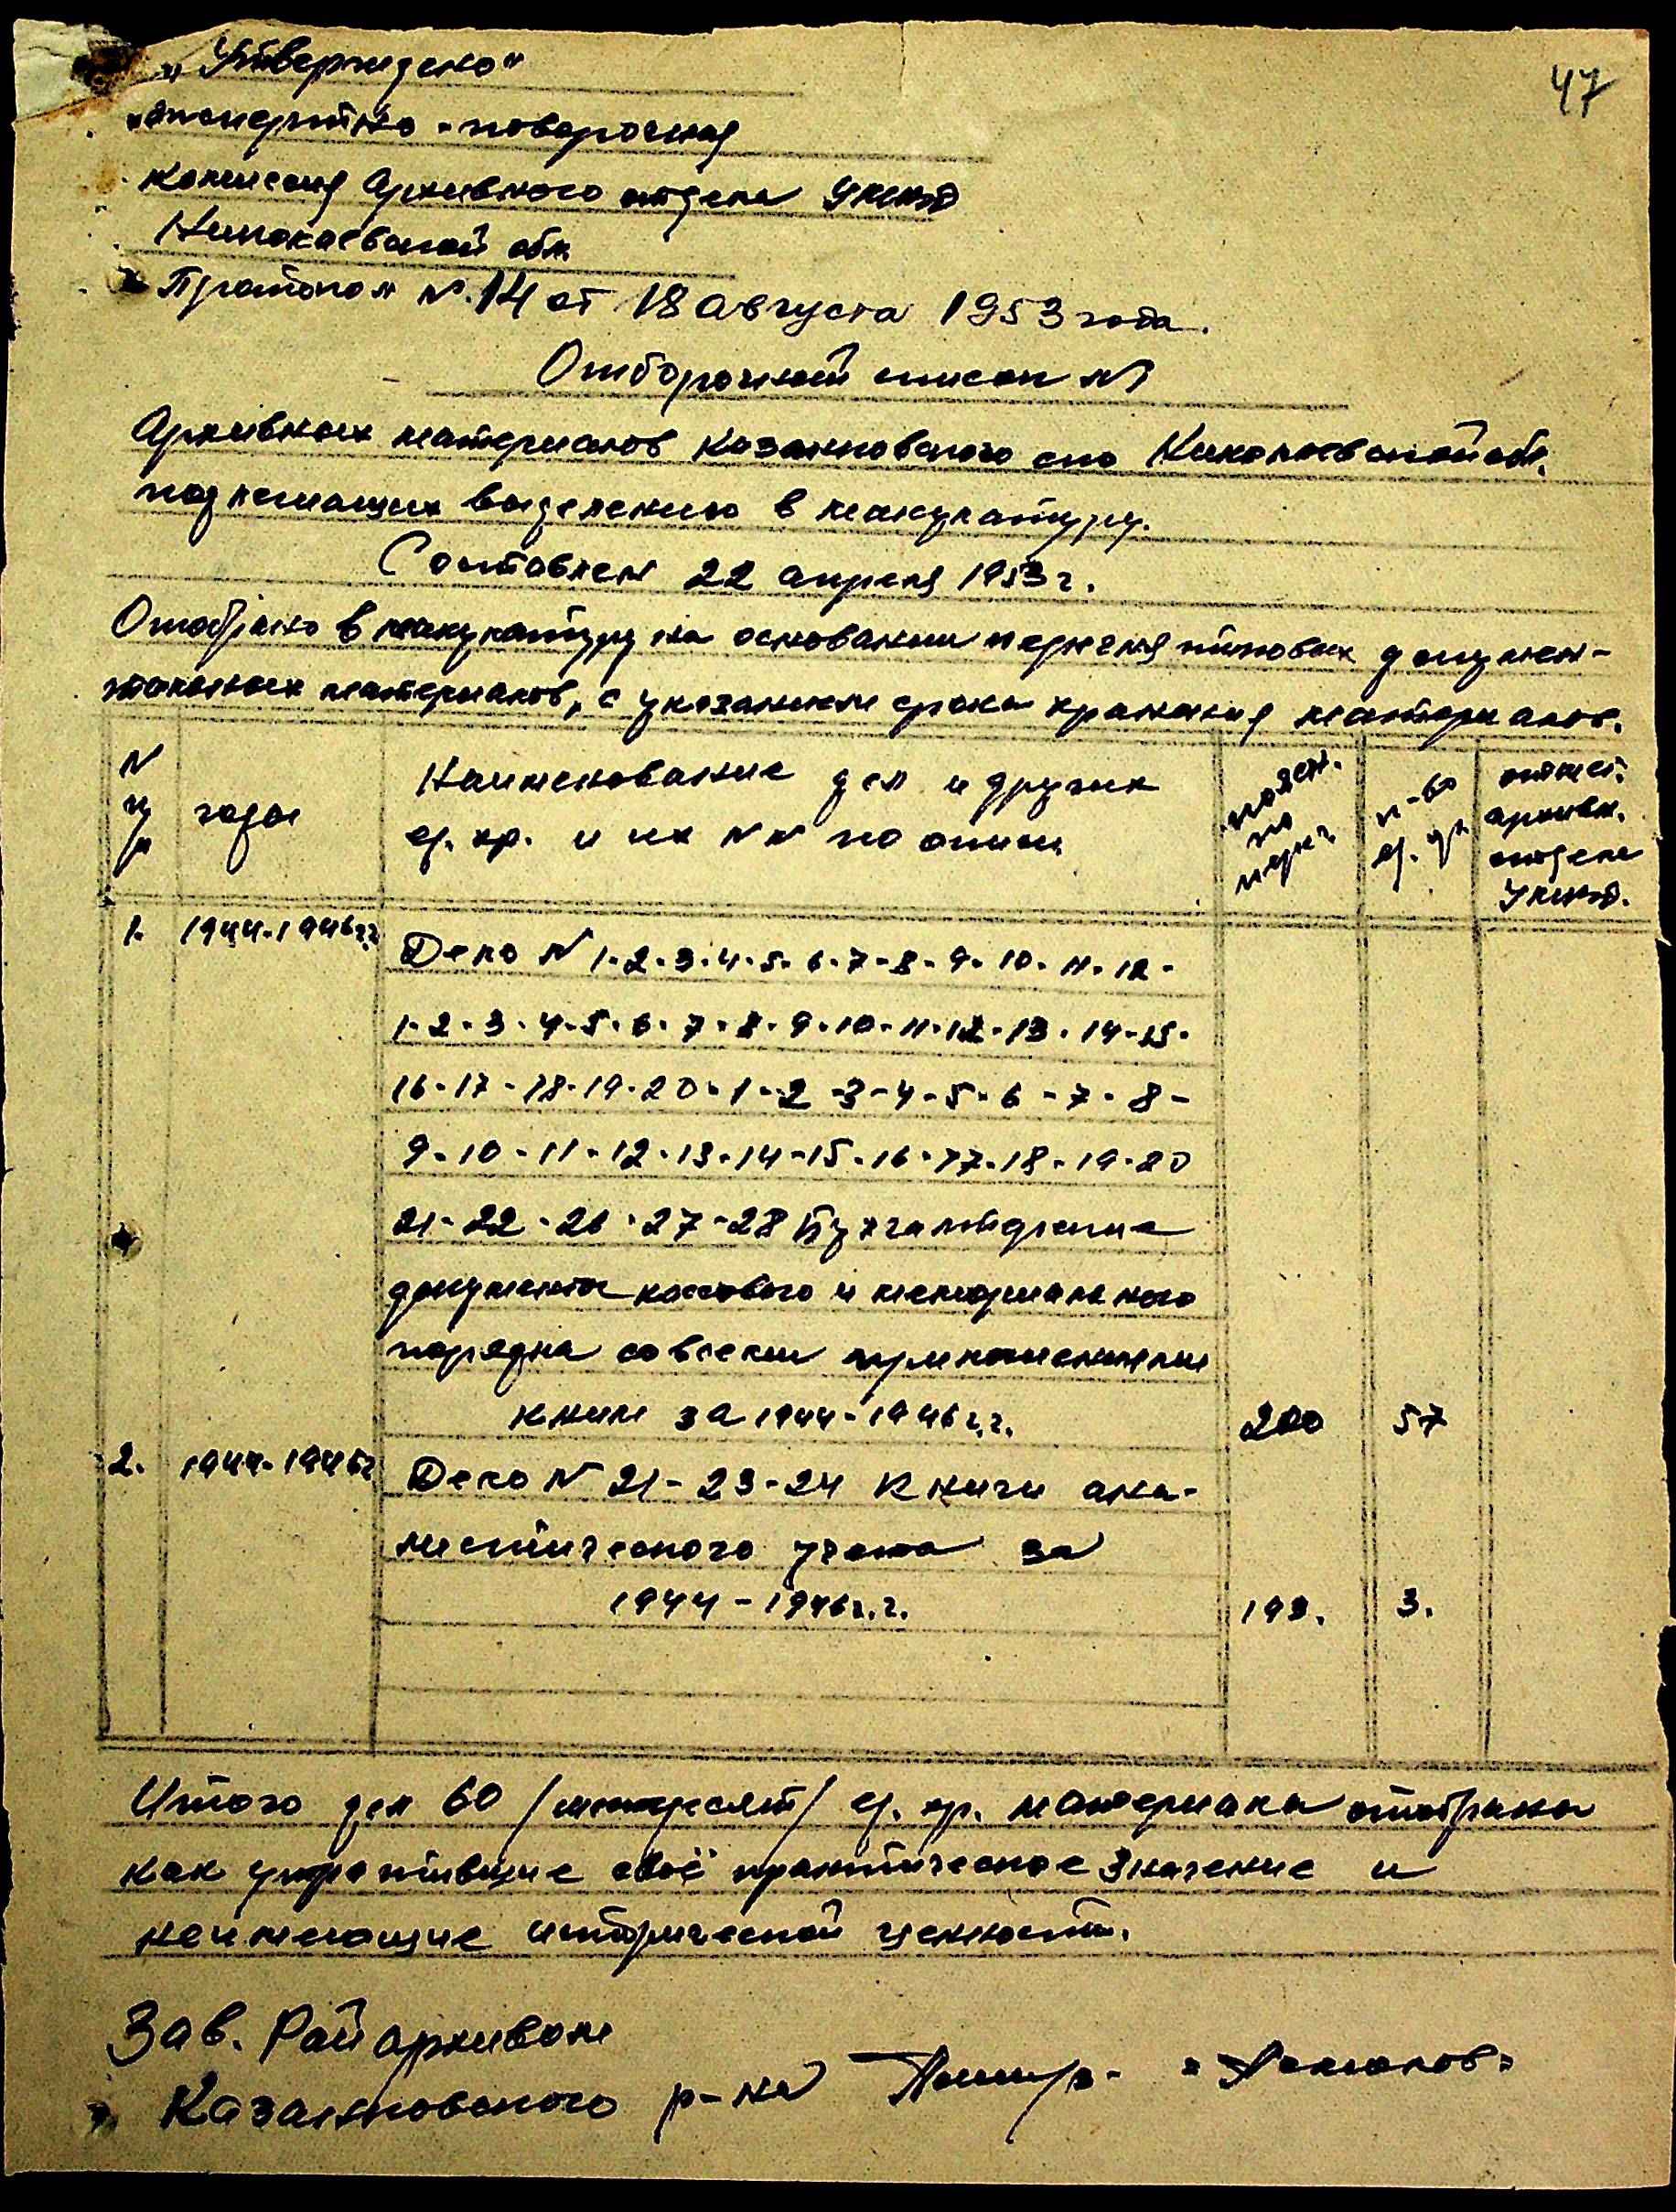 47
„Утверждено"
экспертно-поверочная
комиссия Архивного отдела УМВД
Николаевской обл.
Протокол №.14 от 18 августа 1953 года.
Отборочный список №1
Архивных материалов Казанковского Николаевской обл.
подлежащих выделению в макулатуру.
Составлен 22 апреля 1953 г.
Отобрано в макулатуру на основании перечня типовых докумен-
тальных материалов, с указанием срока хранения материалов.
N п/п
годы
Наименование дел и других
ед. хр. и их NN по описи
по переч.
к-во ед. хр.
отмет. архивн. отдела УМВД.
1. 1944-1946г.г. Дело N 1-2-3-4-5-6-7-8-9-10-11-12-
1-2-3-4-5-6-7-8-9-10-11-12-13-14-15-
16-17-18-19-20-1-2-3-4-5-6-7-8-
9-10-11-12-13-14-15-16-17-18-19-20
21-22-26-27-28 Бухгалтерские
документы кассового и мемориального
порядка со всеми приложениями
книги за 1944-1946 г.г. 200 57
2. 1944-1946г Дело N 21-23-24 Книги ана-
листического учета за
1944-1946г.г. 193. 3.
Итого дел 60 /шестьдесят/ ед. хр. материала отобрано
как утратившие своё практическое значение и
неимеющие исторической ценности.
Зав. Райархивом
Казанковского р-на